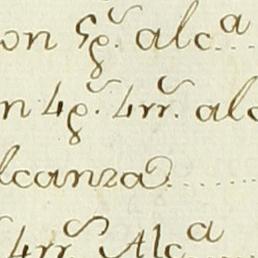 on 5ρ.ˢ alc.ª
n 4ρ.ˢ 4rr.ˢ alc
lcanza
4rr.ˢ Alc.ª